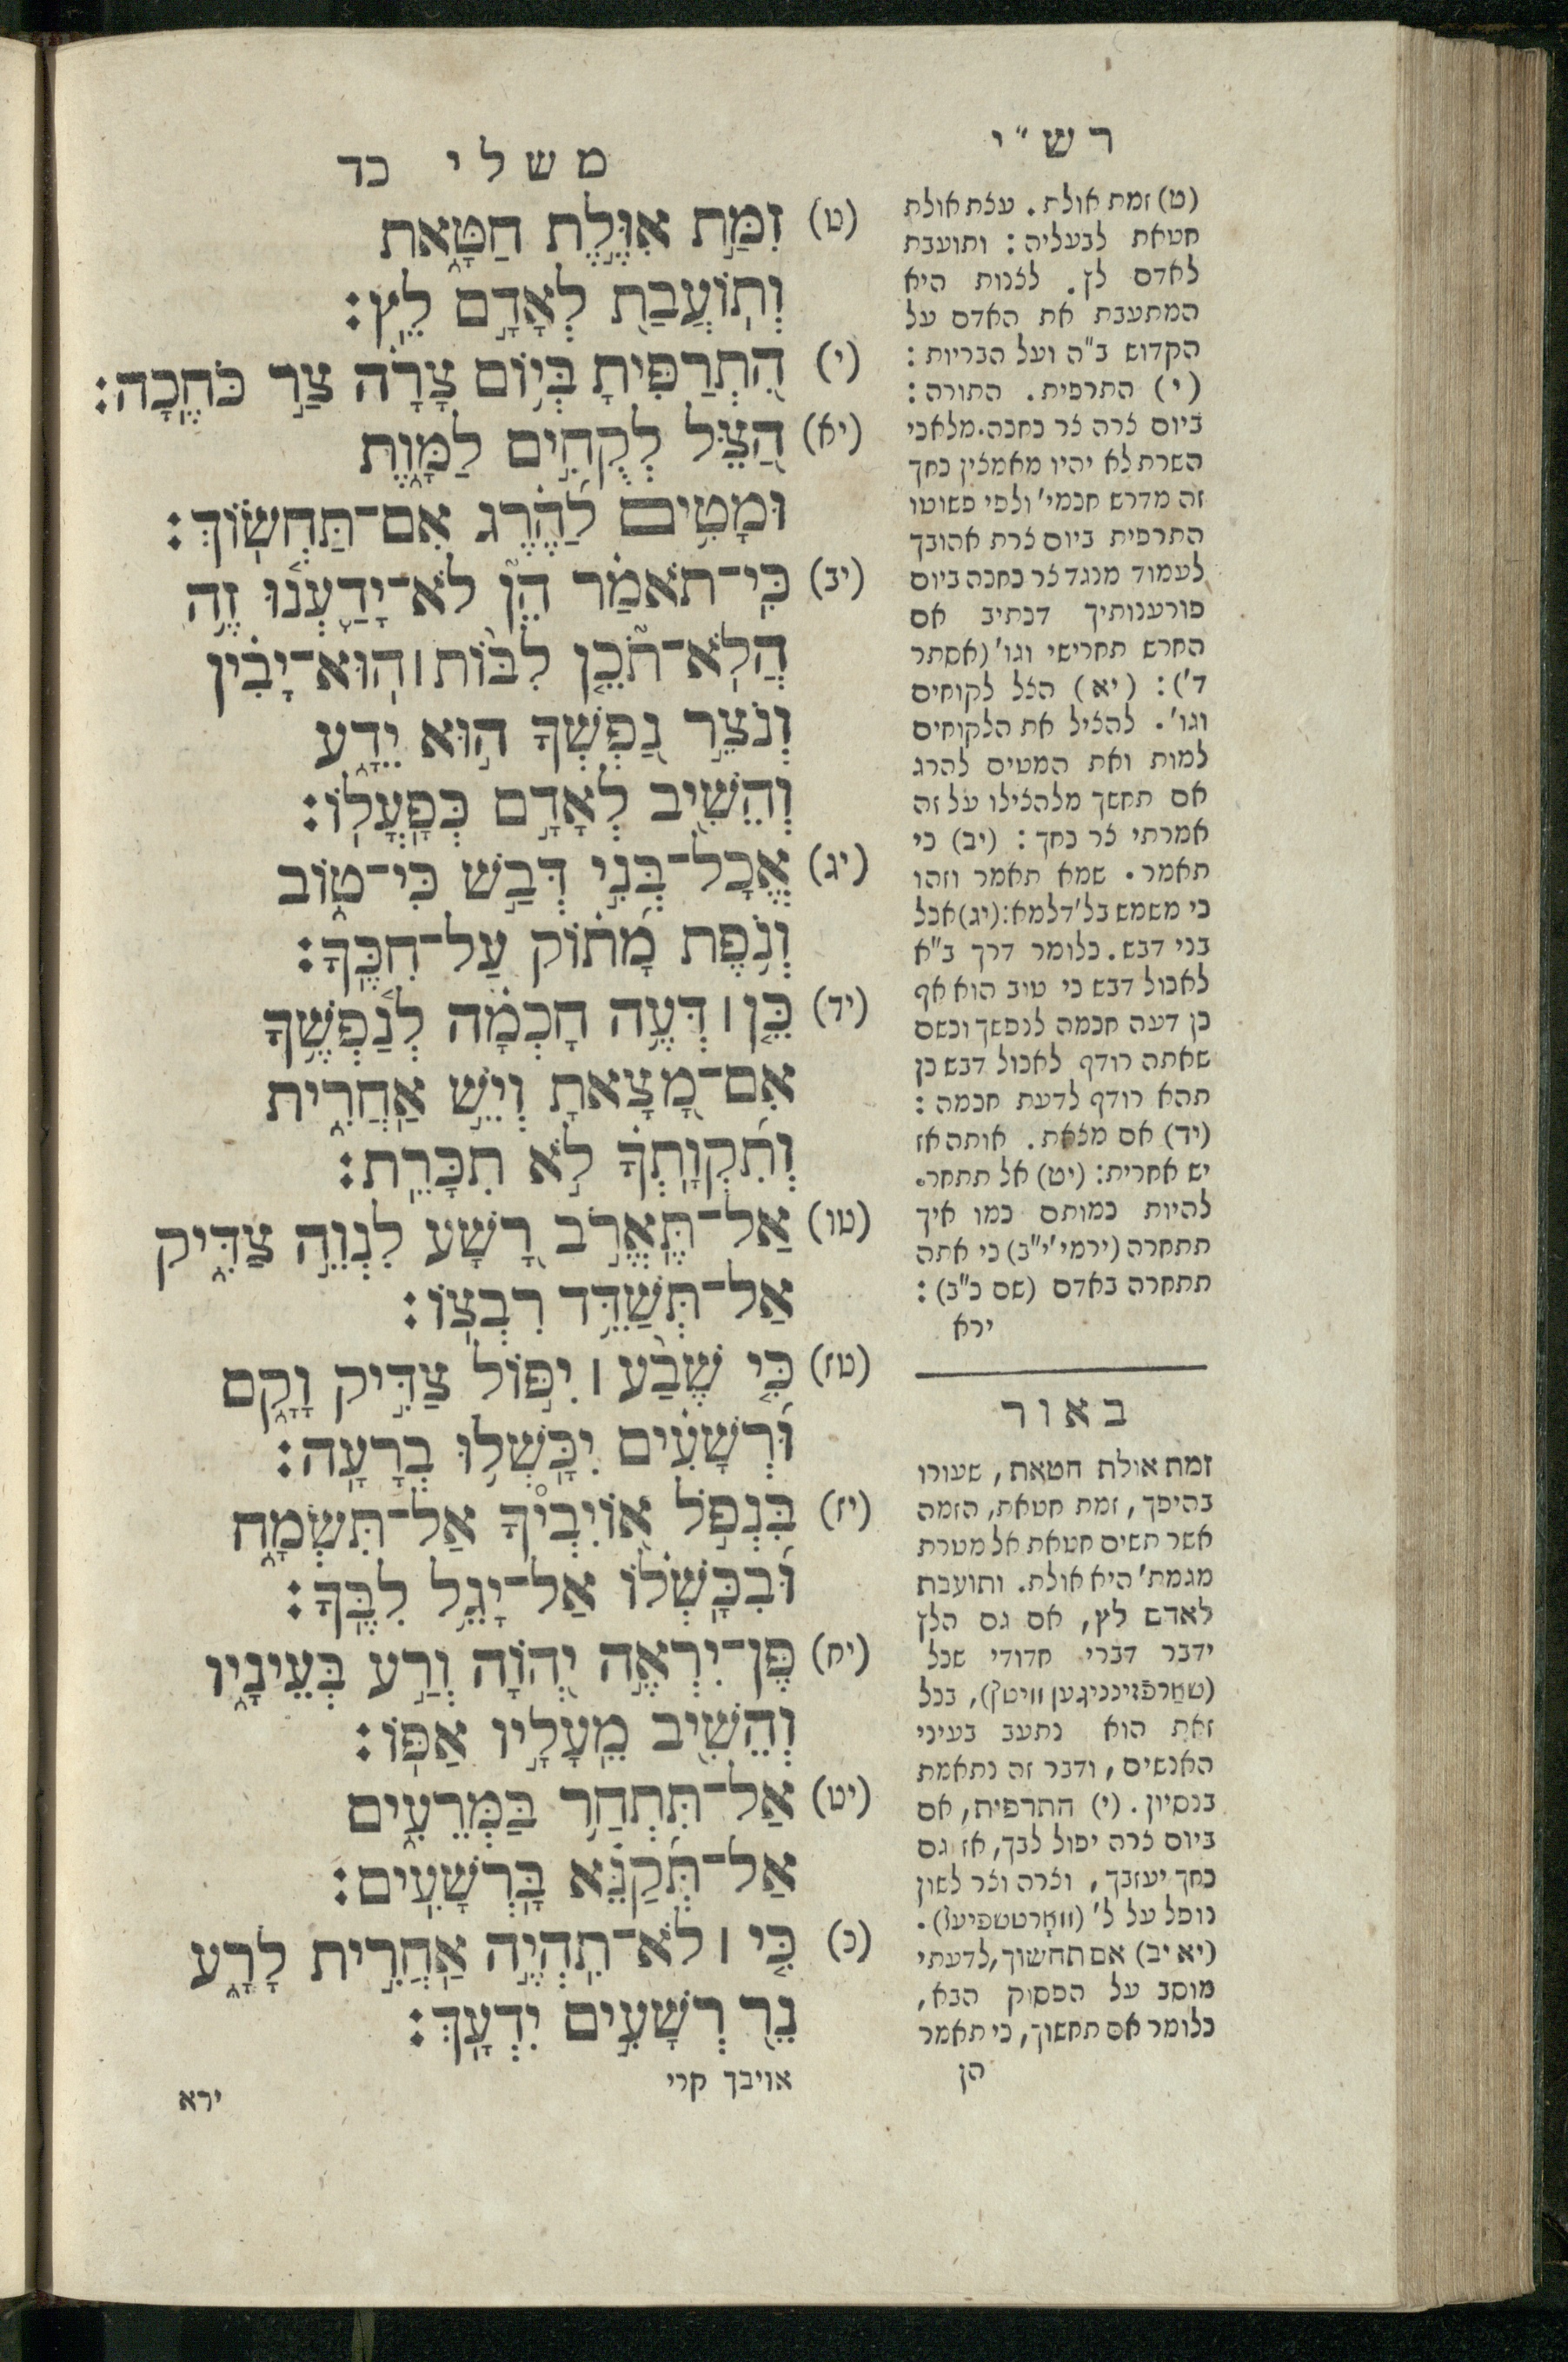 רש״י
(ט) זמת אולת. עצת אולת
חטאת לבעליה: ותועבת
לאדם לץ. לצנות היא
המתעבת את האדם על
הקדוש ב״ה ועל הבריות:
(י) התרפית. התורה:
ביום צרה צר כחכה. מלאכי
השרת לא יהיו מאמצין כחך
זה מדרש חכמי׳ ולפי פשוטו
התרפית ביום צרת אהובך
לעמוד מנגד צר כחכה ביום
פורענותיך דכתיב אם
החרש תחרישי וגו׳ (אסתר
ד׳): (יא) הצל לקוחים
וגו׳. להציל את הלקוחים
למות ואת המטים להרג
אם תחשך מלהצילו על זה
אמרתי צר כחך: (יב) כי
תאמר. שמא תאמר וזהו
כי משמש בל׳ דלמא: (יג) אכל
בני דבש. כלומר דרך ב״א
לאכול דבש כי טוב הוא אף
כן דעה חכמה לנפשך וכשם
שאתה רודף לאכול דבש כן
תהא רודף לדעת חכמה:
(יד) אם מצאת. אותה אז
יש אחרית: (יט) אל תתחר.
להיות כמותם כמו איך
תתחרה (ירמי׳ י״ב) כי אתה
תתחרה באדם (שם כ״ב):
ירא
באור
זמת אולת חטאת, שעורו
בהיפך, זמת חטאת, הזמה
אשר תשים חטאת אל מטרת
מגמת׳ היא אולת. ותועבת
לאדם לץ, אם גם הלץ
ידבר דברי חדודי שכל
(טארפזיננינגען וויטץ), בכל
זאת הוא נתעב בעיני
האנשים, ודבר זה נתאמת
בנסיון. (י) התרפית, אם
ביום צרה יפול לבך, אז גם
כחך יעזבך, וצרה וצר לשון
נופל על ל׳ (ווארטשפיעל).
(יא יב) אם תחשוך, לדעתי
מוסב על הפסוק הבא,
כלומר אם תחשוך, כי תאמר
הן
משלי כד
(ט) זִמַּ֣ת אִוֶּ֣לֶת חַטָּ֑את
וְתוֹעֲבַ֖ת לְאָדָ֣ם לֵֽץ:
(י) הִ֭תְרַפִּיתָ בְּי֥וֹם צָרָ֗ה צַ֣ר כֹּחֶֽכָה:
(יא) הַ֭צֵּל לְקֻחִ֣ים לַמָּ֑וֶת
וּמָטִ֥ים לַ֝הֶ֗רֶג אִם־תַּחְשֽׂוֹךְ:
(יב) כִּֽי־תֹאמַ֗ר הֵן֮ לֹא־יָדַ֪עְנ֫וּ זֶ֥ה
הֲֽלֹא־תֹ֘כֵ֤ן לִבּ֨וֹת ׀ הֽוּא־יָבִ֗ין
וְנֹצֵ֣ר נַ֭פְשְׁךָ ה֣וּא יֵדָ֑ע
וְהֵשִׁ֖יב לְאָדָ֣ם כְּפָעֳלֽוֹ:
(יג) אֱכָל־בְּנִ֣י דְבַ֣שׁ כִּי־ט֑וֹב
וְנֹ֥פֶת מָ֝ת֗וֹק עַל־חִכֶּֽךָ:
(יד) כֵּ֤ן ׀ דְּעֶ֥ה חָכְמָ֗ה לְנַ֫פְשֶׁ֥ךָ
אִם־מָ֭צָאתָ וְיֵ֣שׁ אַחֲרִ֑ית
וְ֝תִקְוָתְךָ֗ לֹ֣א תִכָּרֵֽת:
(טו) אַל־תֶּאֱרֹ֣ב רָ֭שָׁע לִנְוֵ֣ה צַדִּ֑יק
אַֽל־תְּשַׁדֵּ֥ד רִבְצֽוֹ:
(טז) כִּ֤י שֶׁ֨בַע ׀ יִפּ֣וֹל צַדִּ֣יק וָקָ֑ם
וּ֝רְשָׁעִ֗ים יִכָּשְׁל֥וּ בְרָעָֽה:
(יז) בִּנְפֹ֣ל א֭וֹיִבְיךָ אַל־תִּשְׂמָ֑ח
וּ֝בִכָּשְׁל֗וֹ אַל־יָגֵ֥ל לִבֶּֽךָ:
(יח) פֶּן־יִרְאֶ֣ה יְ֭הוָה וְרַ֣ע בְּעֵינָ֑יו
וְהֵשִׁ֖יב מֵעָלָ֣יו אַפּֽוֹ:
(יט) אַל־תִּתְחַ֥ר בַּמְּרֵעִ֑ים
אַל־תְּ֝קַנֵּ֗א בָּרְשָׁעִֽים:
(כ) כִּ֤י ׀ לֹא־תִהְיֶ֣ה אַחֲרִ֣ית לָרָ֑ע
נֵ֖ר רְשָׁעִ֣ים יִדְעָֽךְ:
אויבך קרי
ירא